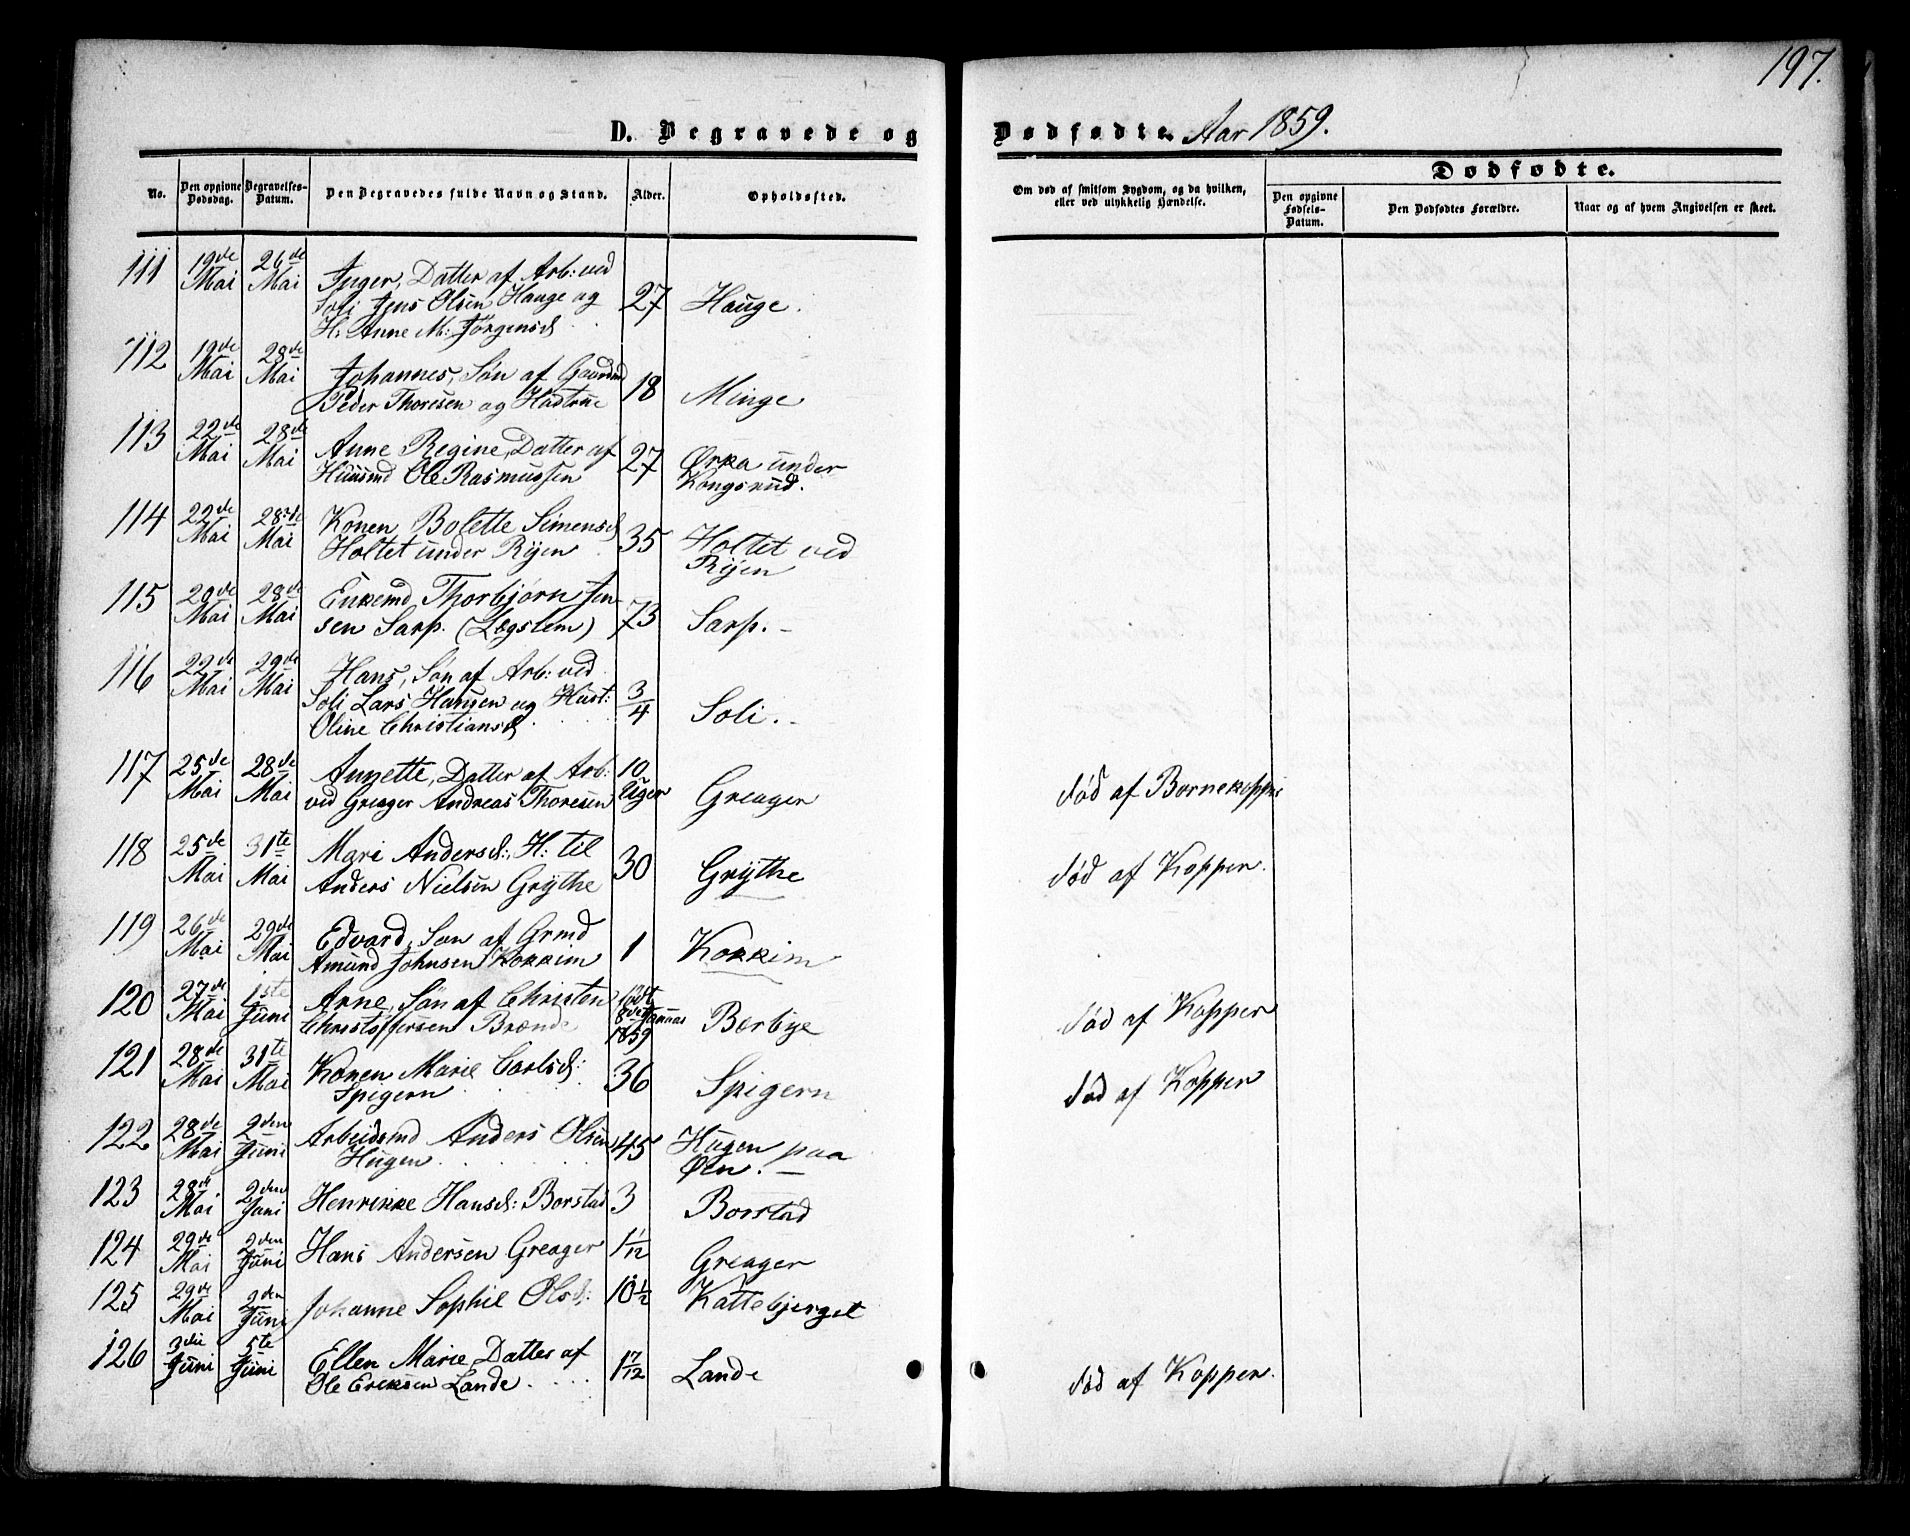 197.
D. Begravede og Dødfødte. Aar 1859.
No.
Den opgivne Dødsdag.
Begravelses-Datum.
Den Begravedes fulde Navn og Stand.
Alder.
Opholdssted.
Om død af smitsom Sygdom, og da hvilken, eller ved ulykkelig Hændelse.
Dødfødte.
Den opgivne Fødsels-Datum.
Den Dødfødtes Forældre.
Naar og af hvem Angivelsen er skeet.
111 19de Mai 26de Mai Inger, Datter af Arb: ved
Soli Jens Olsen Hauge og 27 Hauge.
H. Anne M: Jörgensd
112 19de Mai 28de Mai Johannes, Søn af Gaardmd
Peder Thoresen og Hustrue 18 Minge
113 22de Mai 28de Mai Anne Regine, Datter af
Huusmd Ole Rasmussen 27 Ørka under
Kongsrud.
114 22de Mai 28de Mai Konen Bolette Simensd
Holtet under Ryen 35 Holtet ved
Ryen
115 20de Mai 28de Mai Enkemd Thorbjørn Jen-
sen Sarp. (Lægslem) 73 Sarp. -
116 22de Mai 29de Mai Hans, Søn af Arb: ved
Soli Lars Hansen og Hust: 3/4 Soli. -
Oline Christiansd
117 25de Mai 28de Mai Annette, Datter af Arb:
ved Greager Andreas Thoresen 10 Uger Greager død af Børnekopper
118 25de Mai 31te Mai Mari Andersd:, H: til
Anders Nielsen Grythe 30 Grythe død af Kopper.
119 26de Mai 29de Mai Edvard, Søn af Grmd
Amund Johnsen Kokkim 1 Kokkim
120 27de Mai 1ste Juni Arne, Søn af Christen
Christoffersen Brænde født 8de Januar 1859 Bærbye død af Kopper
121 28de Mai 31te Mai Konen Marie Carlsd:
Spigern 36 Spigern død af Kopper
122 28de Mai 2den Juni Arbeidsmd Anders Olsen
Hugen 45 Hugen paa
Øen. -
123 28de Mai 2den Juni Henrikke Hansd: Borstad 3 Borstad
124 29de Mai 2den Juni Hans Andersen Greager 1 1/12 Greager
125 29de Mai 2den Juni Johanne Sophie Olsd: 10 1/2 Kattebjerget
126 3die Juni 5te Juni Ellen Marie, Datter af
Ole Eriksen Lande. 1 7/12 Lande død af Kopper.